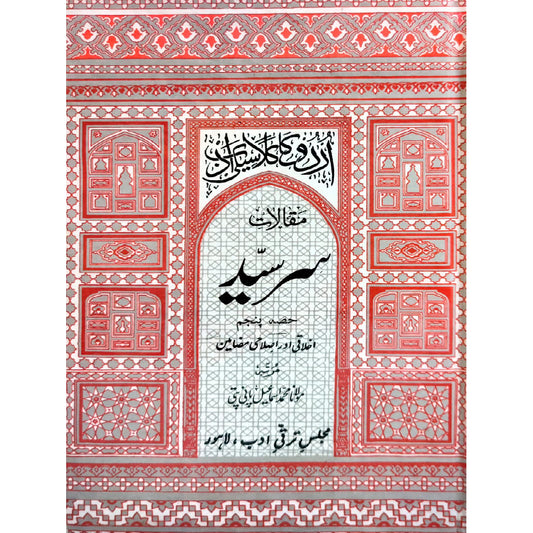 اردو کا کلاسیکی ادب
مقالات
سر سیّد
حصہ پنجم
اخلاقی اور اصلاحی مضامین
مرتبہ
مولانا محمد اسماعیل پانی پتی
مجلس ترقی ادب، لاہور